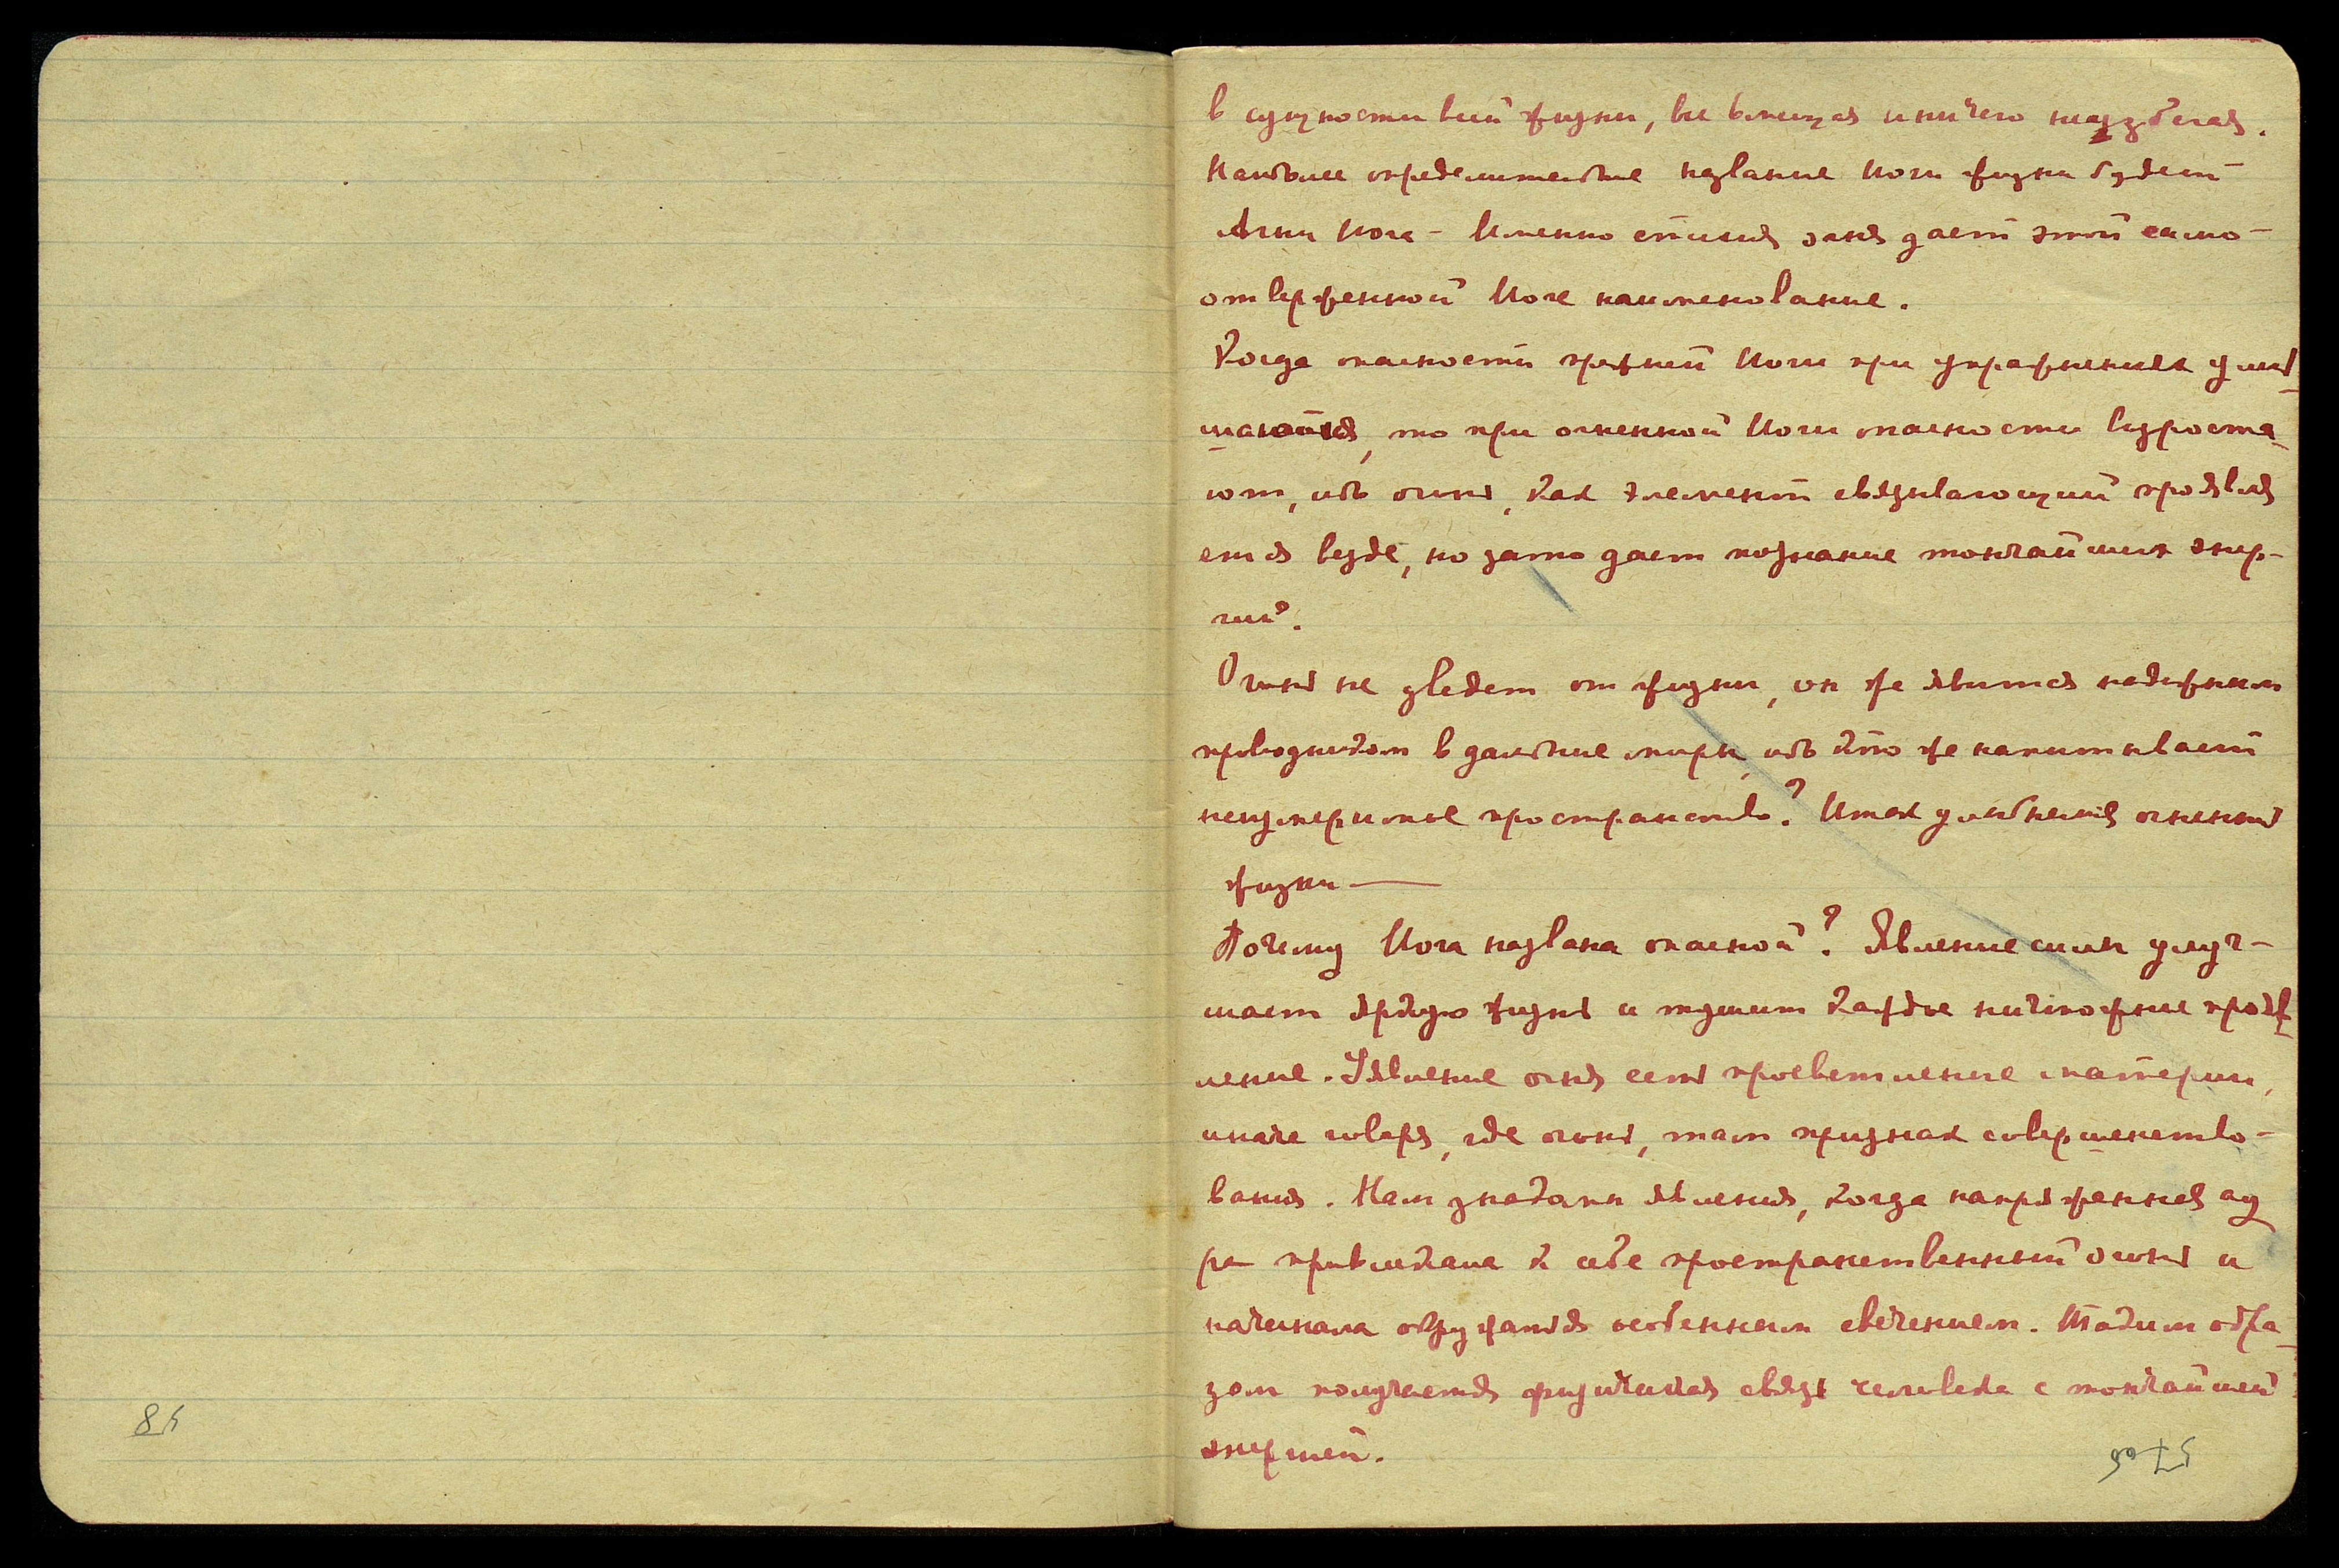 в сущности всей жизни, все вмещая и ничего не избегая.
Наиболее определительное название Йоги жизни будет
Агни Йога – Именно стихия огня дает этой само-
отверженной Йоге наименование.
Когда опасности прежней Йоги при упражнениях умень
шаются, то при огненной Йоги опасности возроста
ют, ибо огонь, как элемент связывающий проявля
ется везде, но зато дает познание тончайших энер-
гий.
Огонь не уведет от жизни, он же явится надежным
проводником в дальние миры, ибо что же напитывает
неизмеримое пространство? Итак улыбнемся огненной
жизни —
Почему Йога названа опасной? Явление силы улуч-
шает яркую жизнь и тушит каждое ничтожное прояв
ление. Уявление огня есть просветление материи,
иначе говоря, где огонь, там признак совершенство-
вания. Нам знакомы явления, когда напряженная ау
ра привлекала к себе пространственный огонь и
начинала окружаться особенным свечением. Таким обра
зом получается физическая связь человека с тончайшей
энергией.
58
57 об